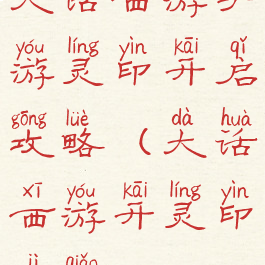 大话西游
yóu líng yìn kāi qǐ
游灵印开启
gōng lüè dà huà
攻略（大话
xī yóu kāi líng yìn
西游开灵印
jì qiǎo